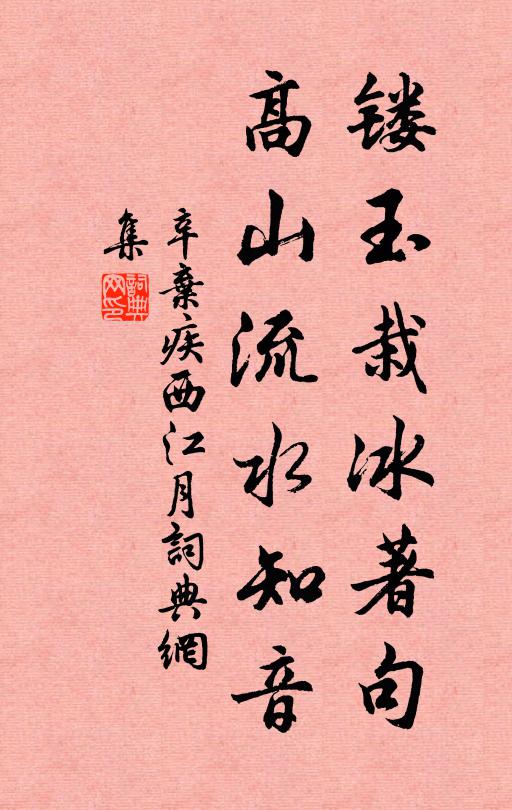 镂玉栽冰著句
高山流水知音
辛棄疾西江月詞典網
集
詞典
网印